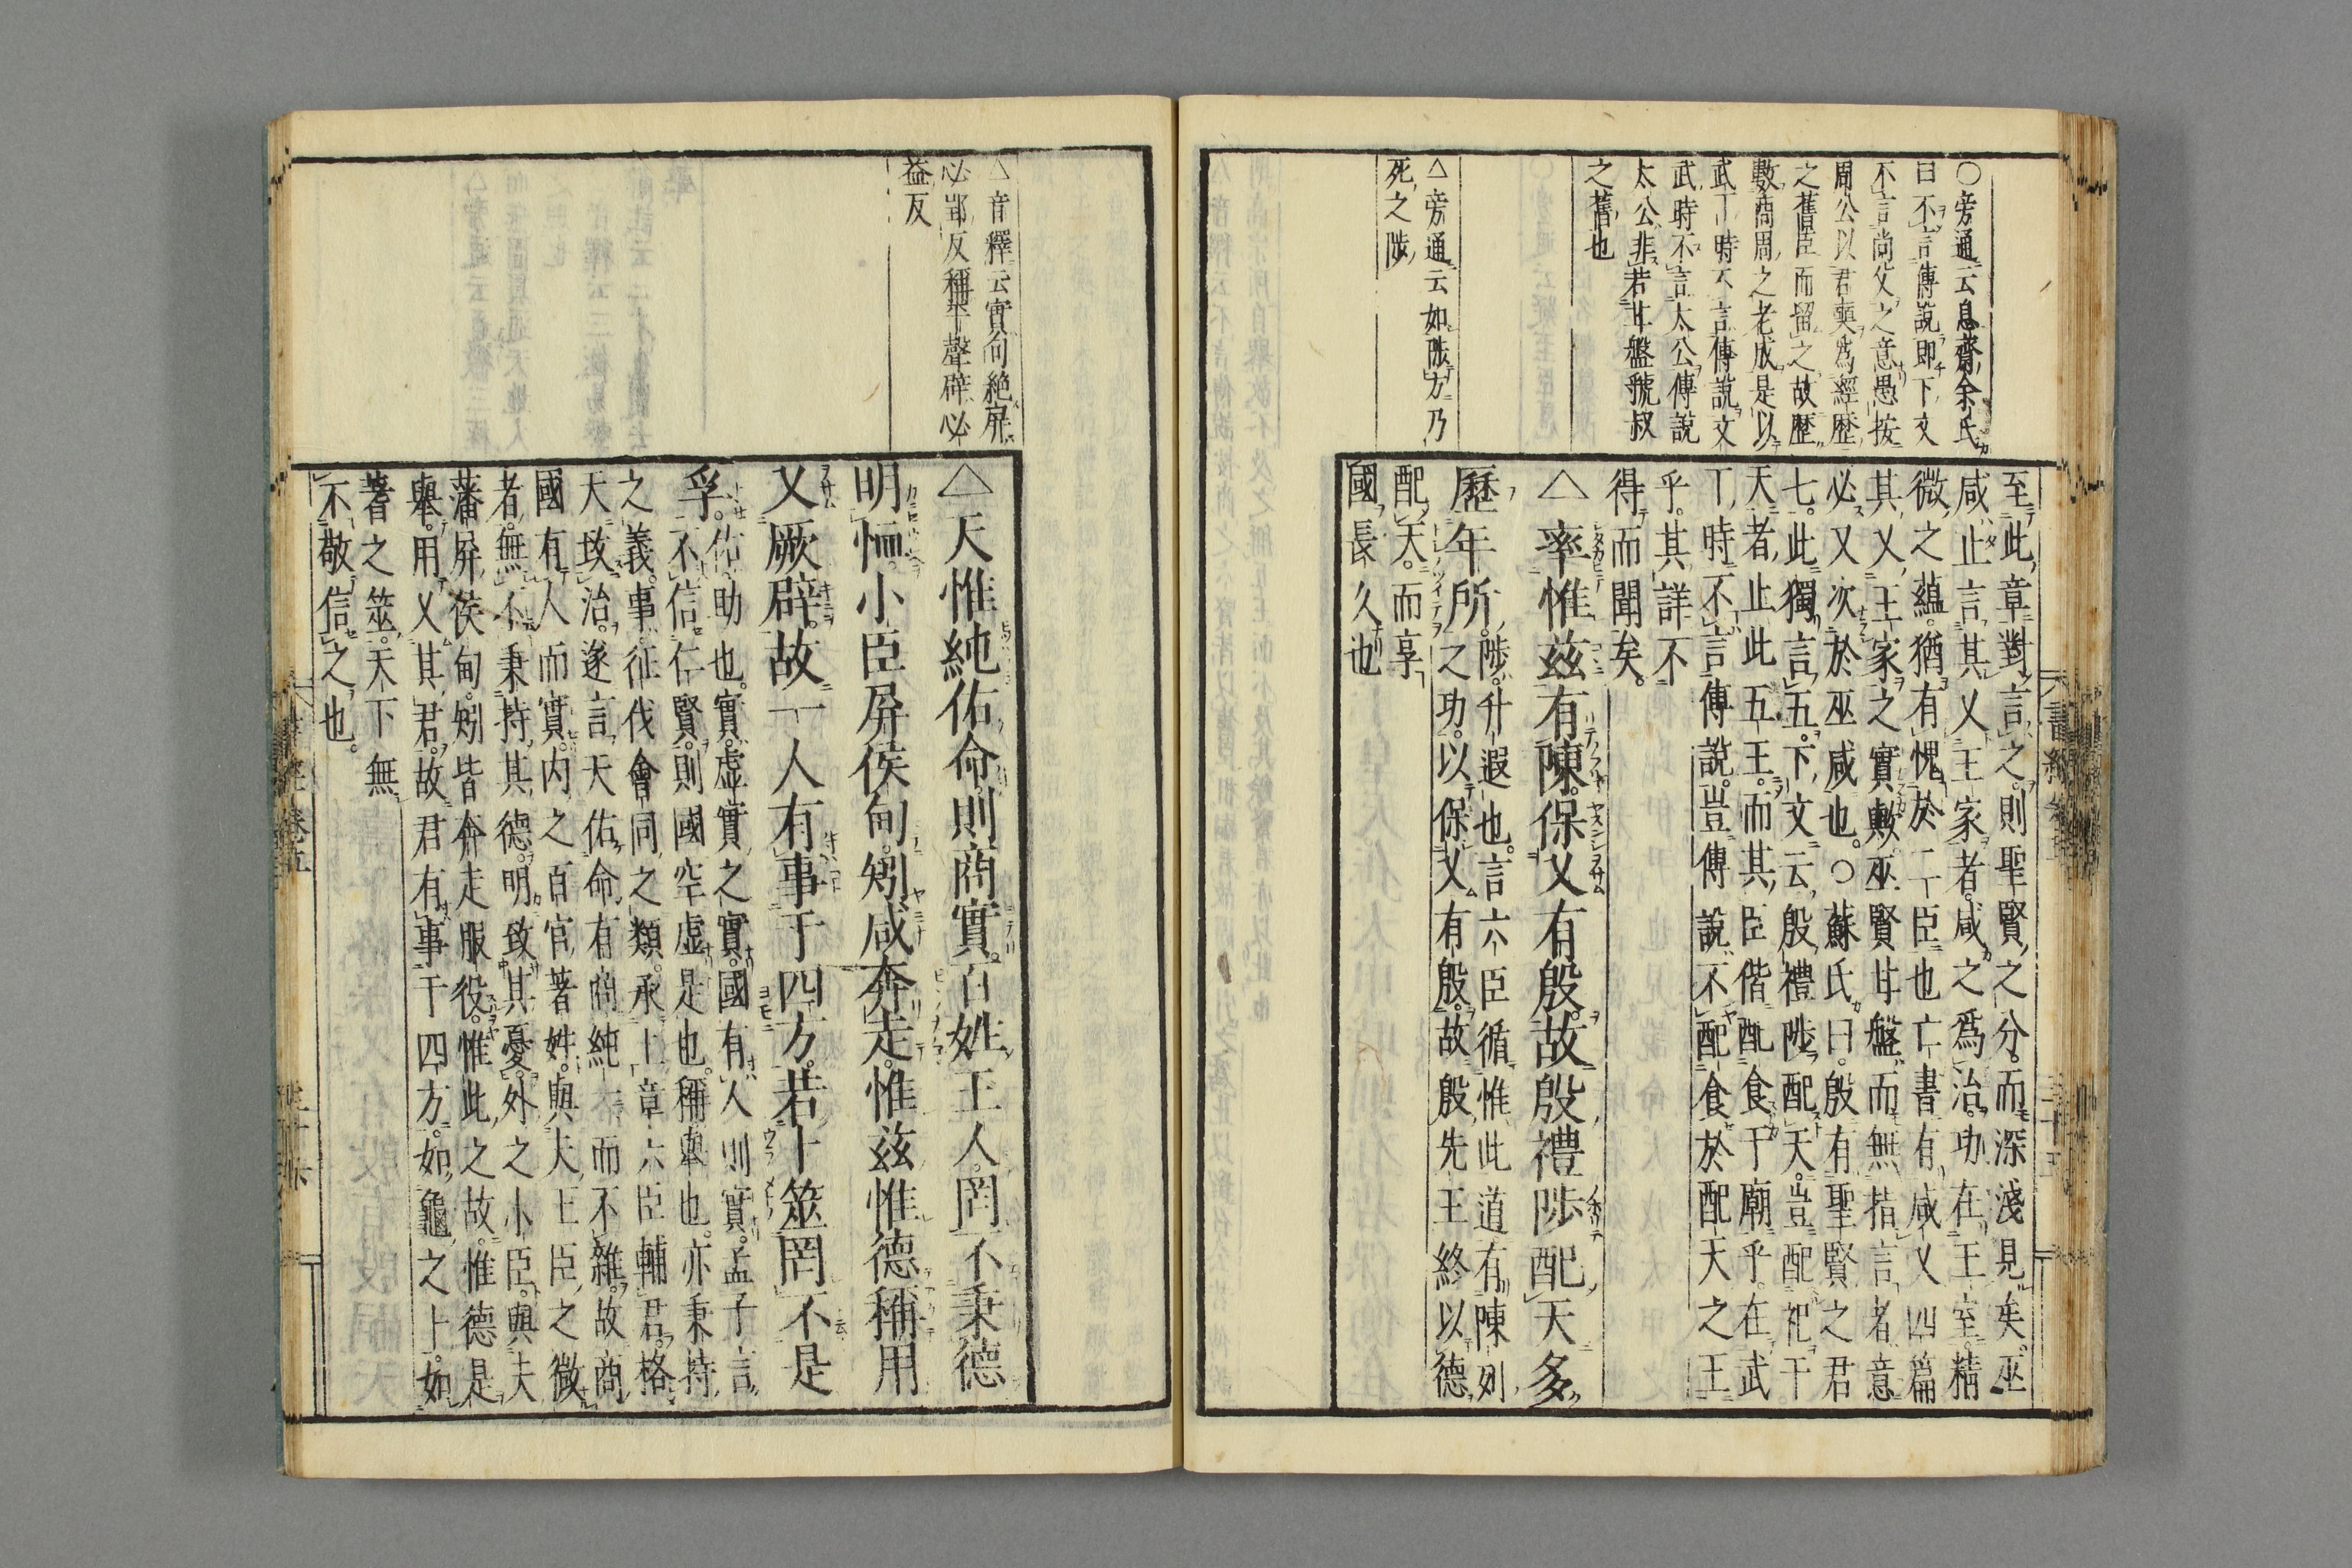 ○旁通云息齋余氏
曰不言傳說即下文
不言尚父之意愚按
周公以君奭爲經歷
之舊臣而留之故歷
數商周之老成是以
武丁時不言傳說文
武時不言太公傳說
太公非若甘盤虢叔
之舊也
△旁通云如陟方乃
死之陟
至此章對言之則聖賢之分。而深淺見矣。巫
咸止言其乂王家者。咸之爲治。功在王室。精
微之蘊。猶有愧於二臣也亡書有咸乂四篇
其乂王家之實歟巫賢甘盤而無指言者意
必又次於巫咸也。○蘇氏曰。殷有聖賢之君
七。此獨言五。下文云殷禮陟配天。豈配祀于
天者止此五王。而其臣偕配食于廟乎。在武
丁時不言傳說。豈傳說不配食於配天之王
乎。其詳不
得而聞矣。
△率惟茲有陳。保乂有殷。故殷禮陟配天多
歷年所。陟。升遐也。言六臣循惟此道有陳列
之功。以保乂有殷。故殷先王終以德
配天。而享
國長久也
△音釋云實句絶屛
必郢反稱平聲辟必
益反
△天惟純佑命則商實。百姓王人。罔不秉德
明恤。小臣屛侯甸。矧咸奔走。惟茲惟德稱用
乂厥辟。故一人有事于四方。若卜筮罔不是
孚。佑助也。實。虛實之實。國有人則實。孟子言
不信仁賢。則國空虛是也。稱擧也。亦秉持
之義。事。征伐會同之類。承上章六臣輔君。格
天致治。遂言天佑命。有商純一而不雜。故商
國有人而實。內之百官著姓。與夫王臣之微
者。無不秉持其德。明致其憂。外之小臣。與夫
藩屛侯甸。矧皆奔走服役。惟此之故。惟德是
擧。用乂其君。故君有事于四方。如龜之卜。如
蓍之筮。天下無
不敬信之也。